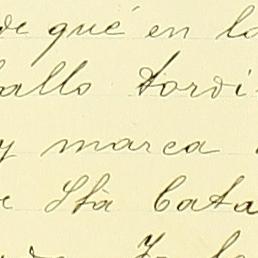 de qué en la
ballo tordi-
y marca
e Sta Cata